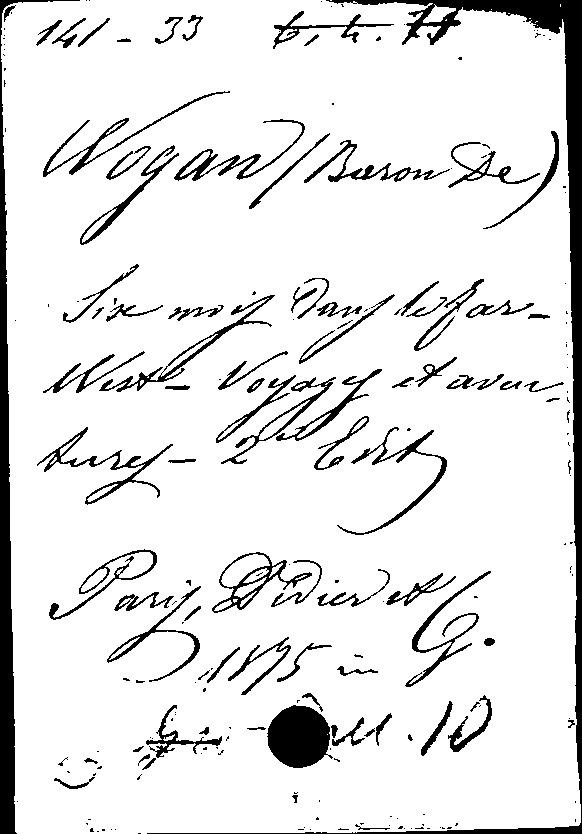 141 - 33
Wogan (Baron De)
Six mois dans le far-
West - Voyages et aven-
tures - 2e Edit
Paris, Didier et C.
1875 in
M. 10